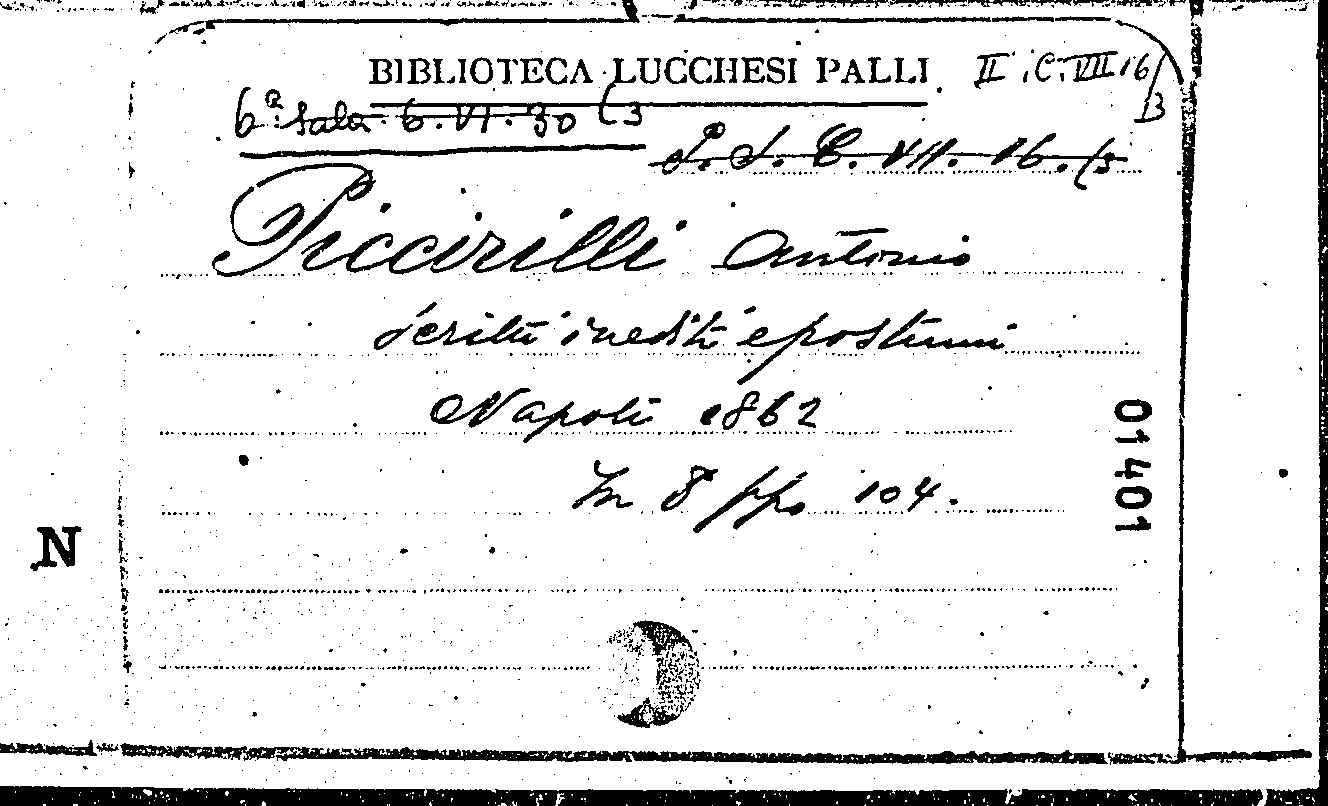 BIBLIOTECA LUCCHESI PALLI
II. C. VII. 16/3
6ª Sala. 6. VI. 30 (3
P. S. C. VII. 16. (3
Piccirilli Antonio
Scritti inediti e postumi
Napoli 1862
In 8 pp. 104.
01401
N